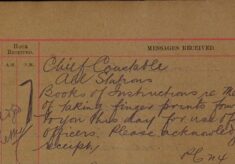 HOUR RECEIVED
MESSAGES RECEIVED
A.M. P.M.
Chief Constable
All Stations
Books of Instructions re M
of taking finger prints forw
to you this day for use of
officers. Please acknowled
receipt.